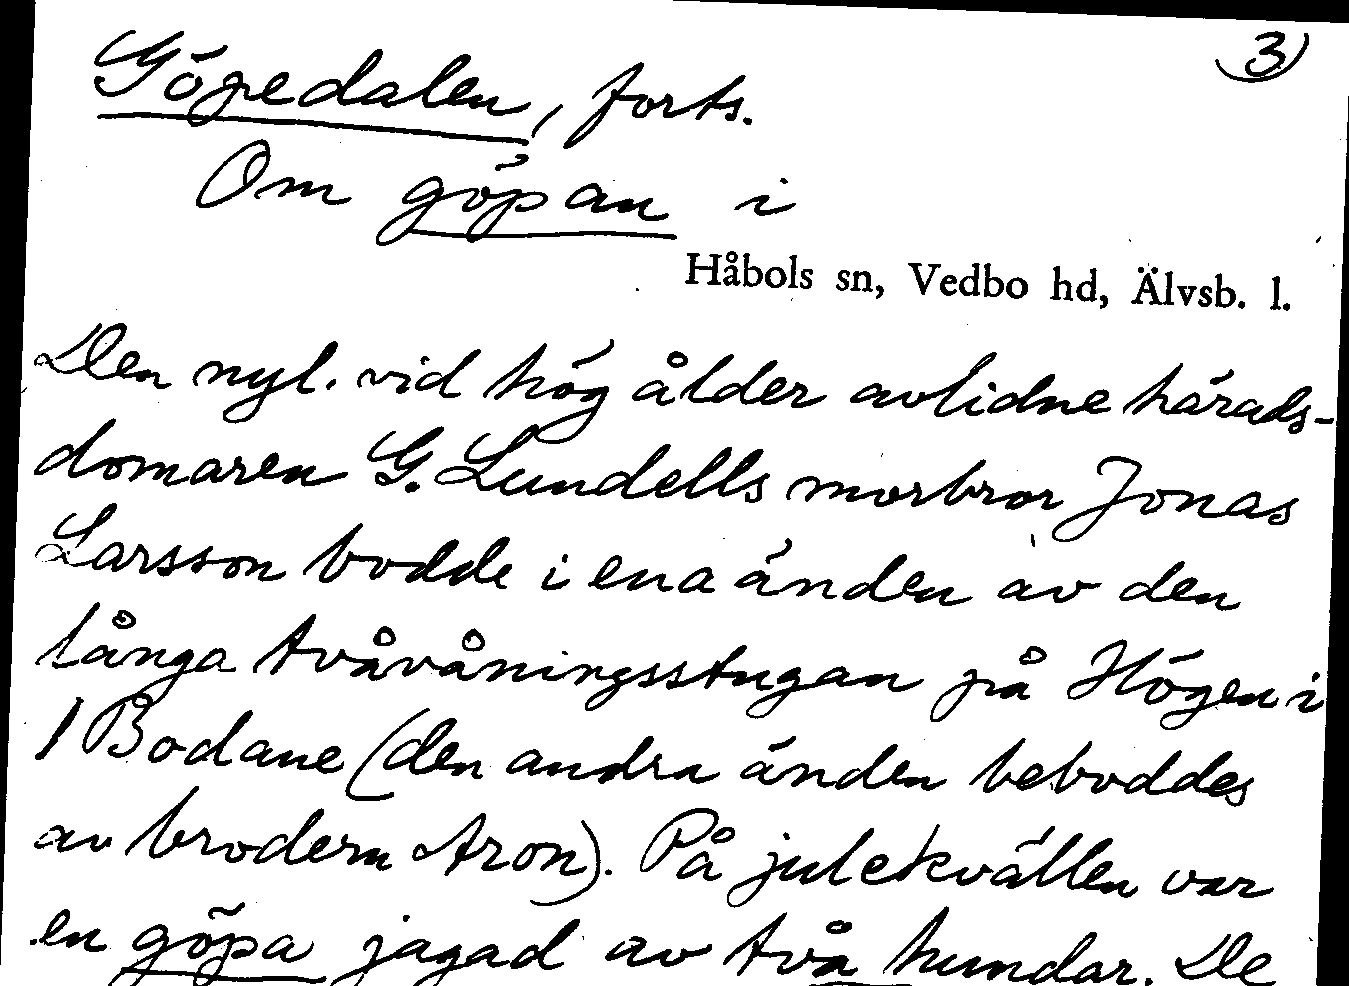 3)
Göpedalen, forts.
Om göpan i
Håbols sn, Vedbo hd, Älvsb. l.
Den nyl. vid hög ålder avlidne härads-
domaren G. Lundells morbror Jonas
Larsson bodde i ena änden av den
långa tvåvåningsstugan på Högen i
/ Bodane (den andra änden beboddes
av brodern Aron). På julekvällen var
en göpa jagad av två hundar. De